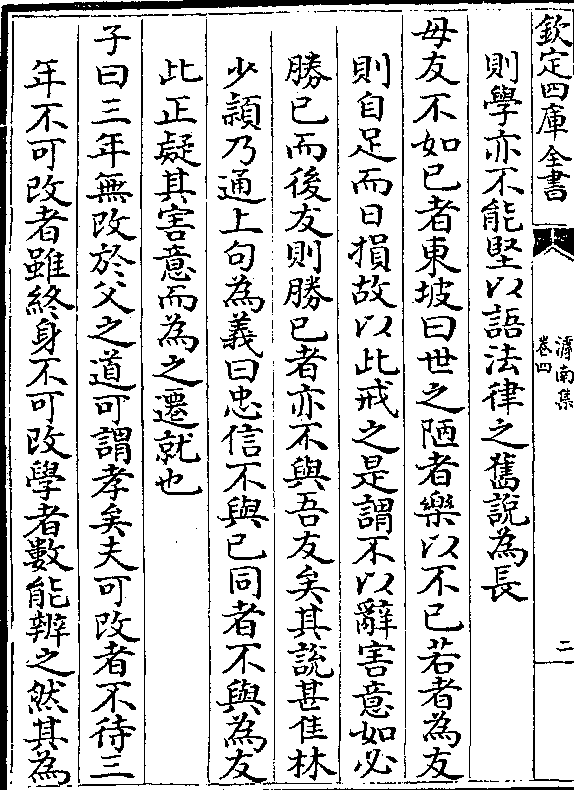 欽定四庫全書
滹南集
卷四
二
則學亦不能堅以語法律之舊說為長
毋友不如已者東坡曰世之陋者樂以不已若者為友
則自足而日損故以此戒之是謂不以辭害意如必
勝已而後友則勝已者亦不與吾友矣其說甚佳林
少穎乃通上句為義曰忠信不與已同者不與為友
此正疑其害意而為之遷就也
子曰三年無改於父之道可謂孝矣夫可改者不待三
年不可改者雖終身不可改學者數能辨之然其為